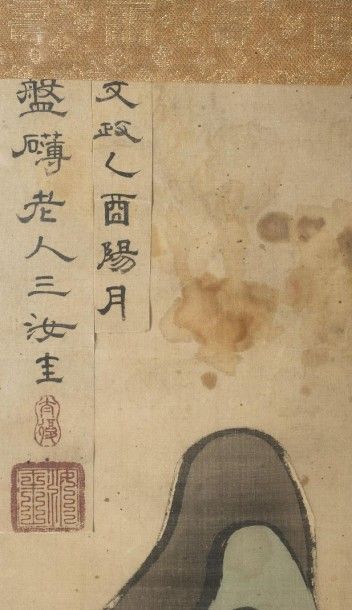 文政乙酉陽月
盤礴老人三汝圭